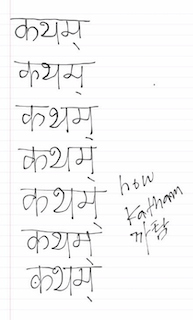 कथम्
कथम्
कथम्
कथम्
कथम्
कथम्
कथम्
how
Katham